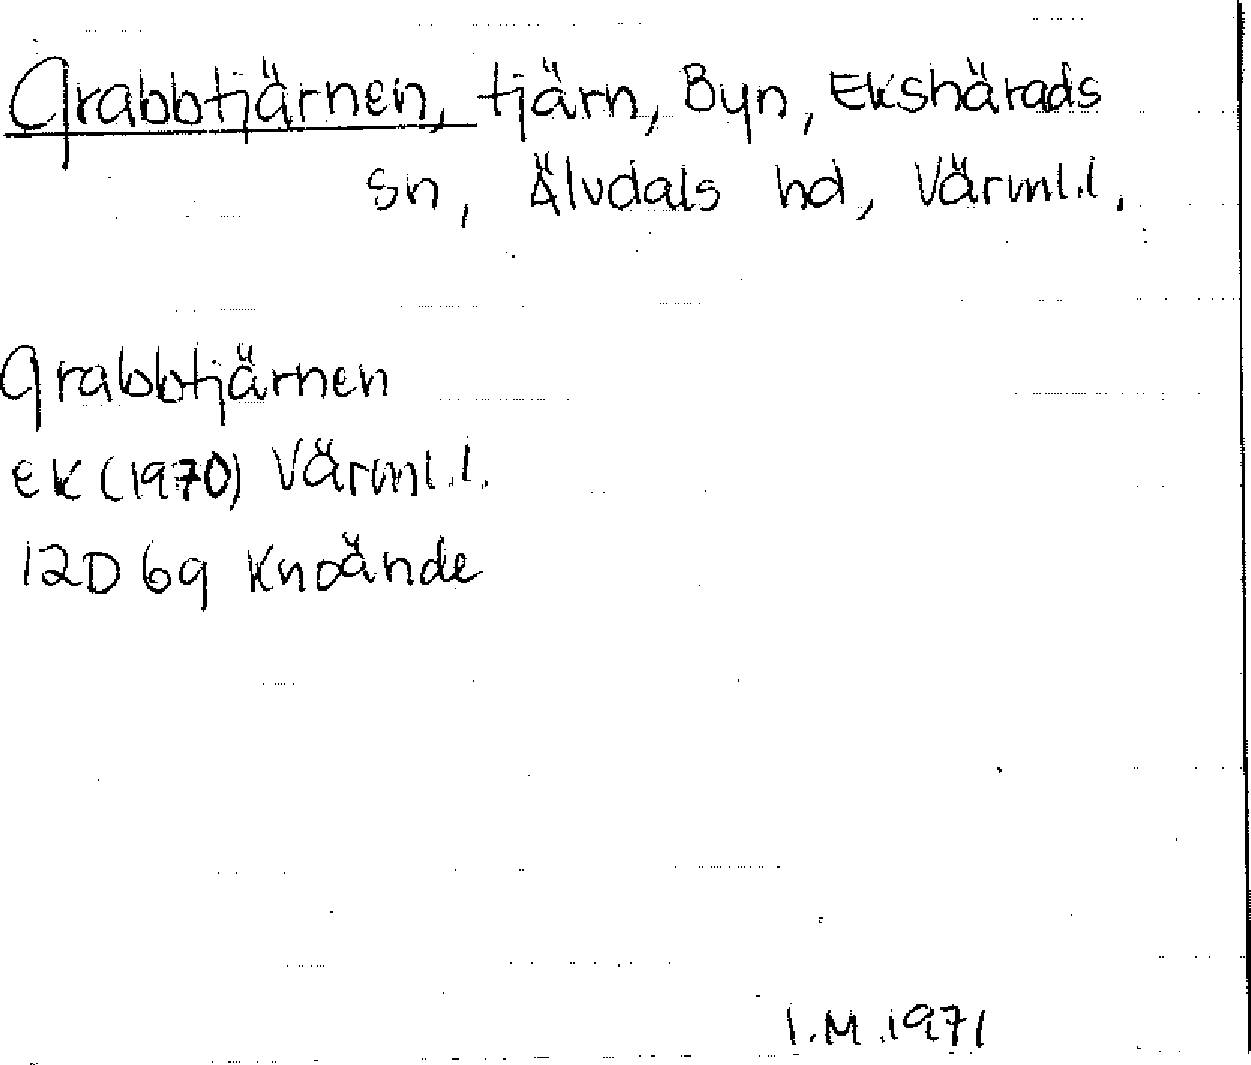 Grabbtjärnen, tjärn, Byn, Ekshärads
sn, Älvdals hd, Värml.l.
Grabbtjärnen
EK (1970) Värml.l.
12D 6g Knoände
I.M. 1971